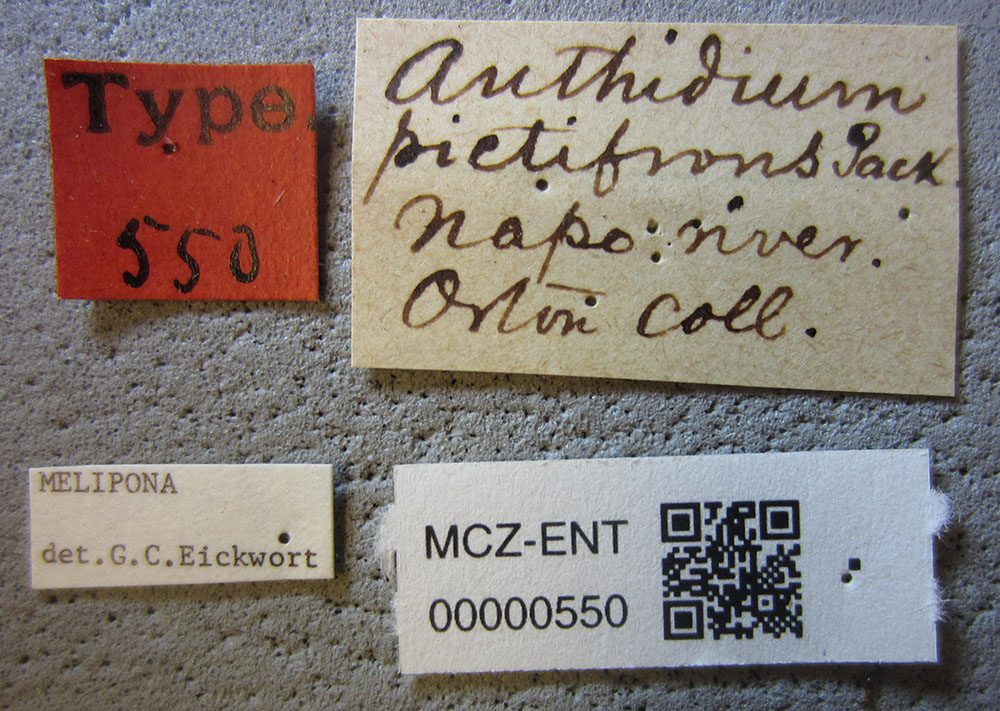 Type.
550
Anthidium
pictifrons Pack.
Napo: river.
Orton coll.
MELIPONA
det.G.C.Eickwort
MCZ-ENT
00000550